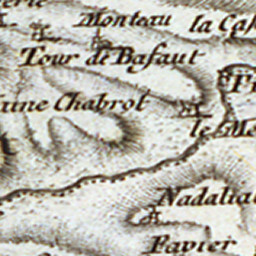 Monteau
la Ca
Tour de Bafaut
Chabrol
le
Nadalia
Favier